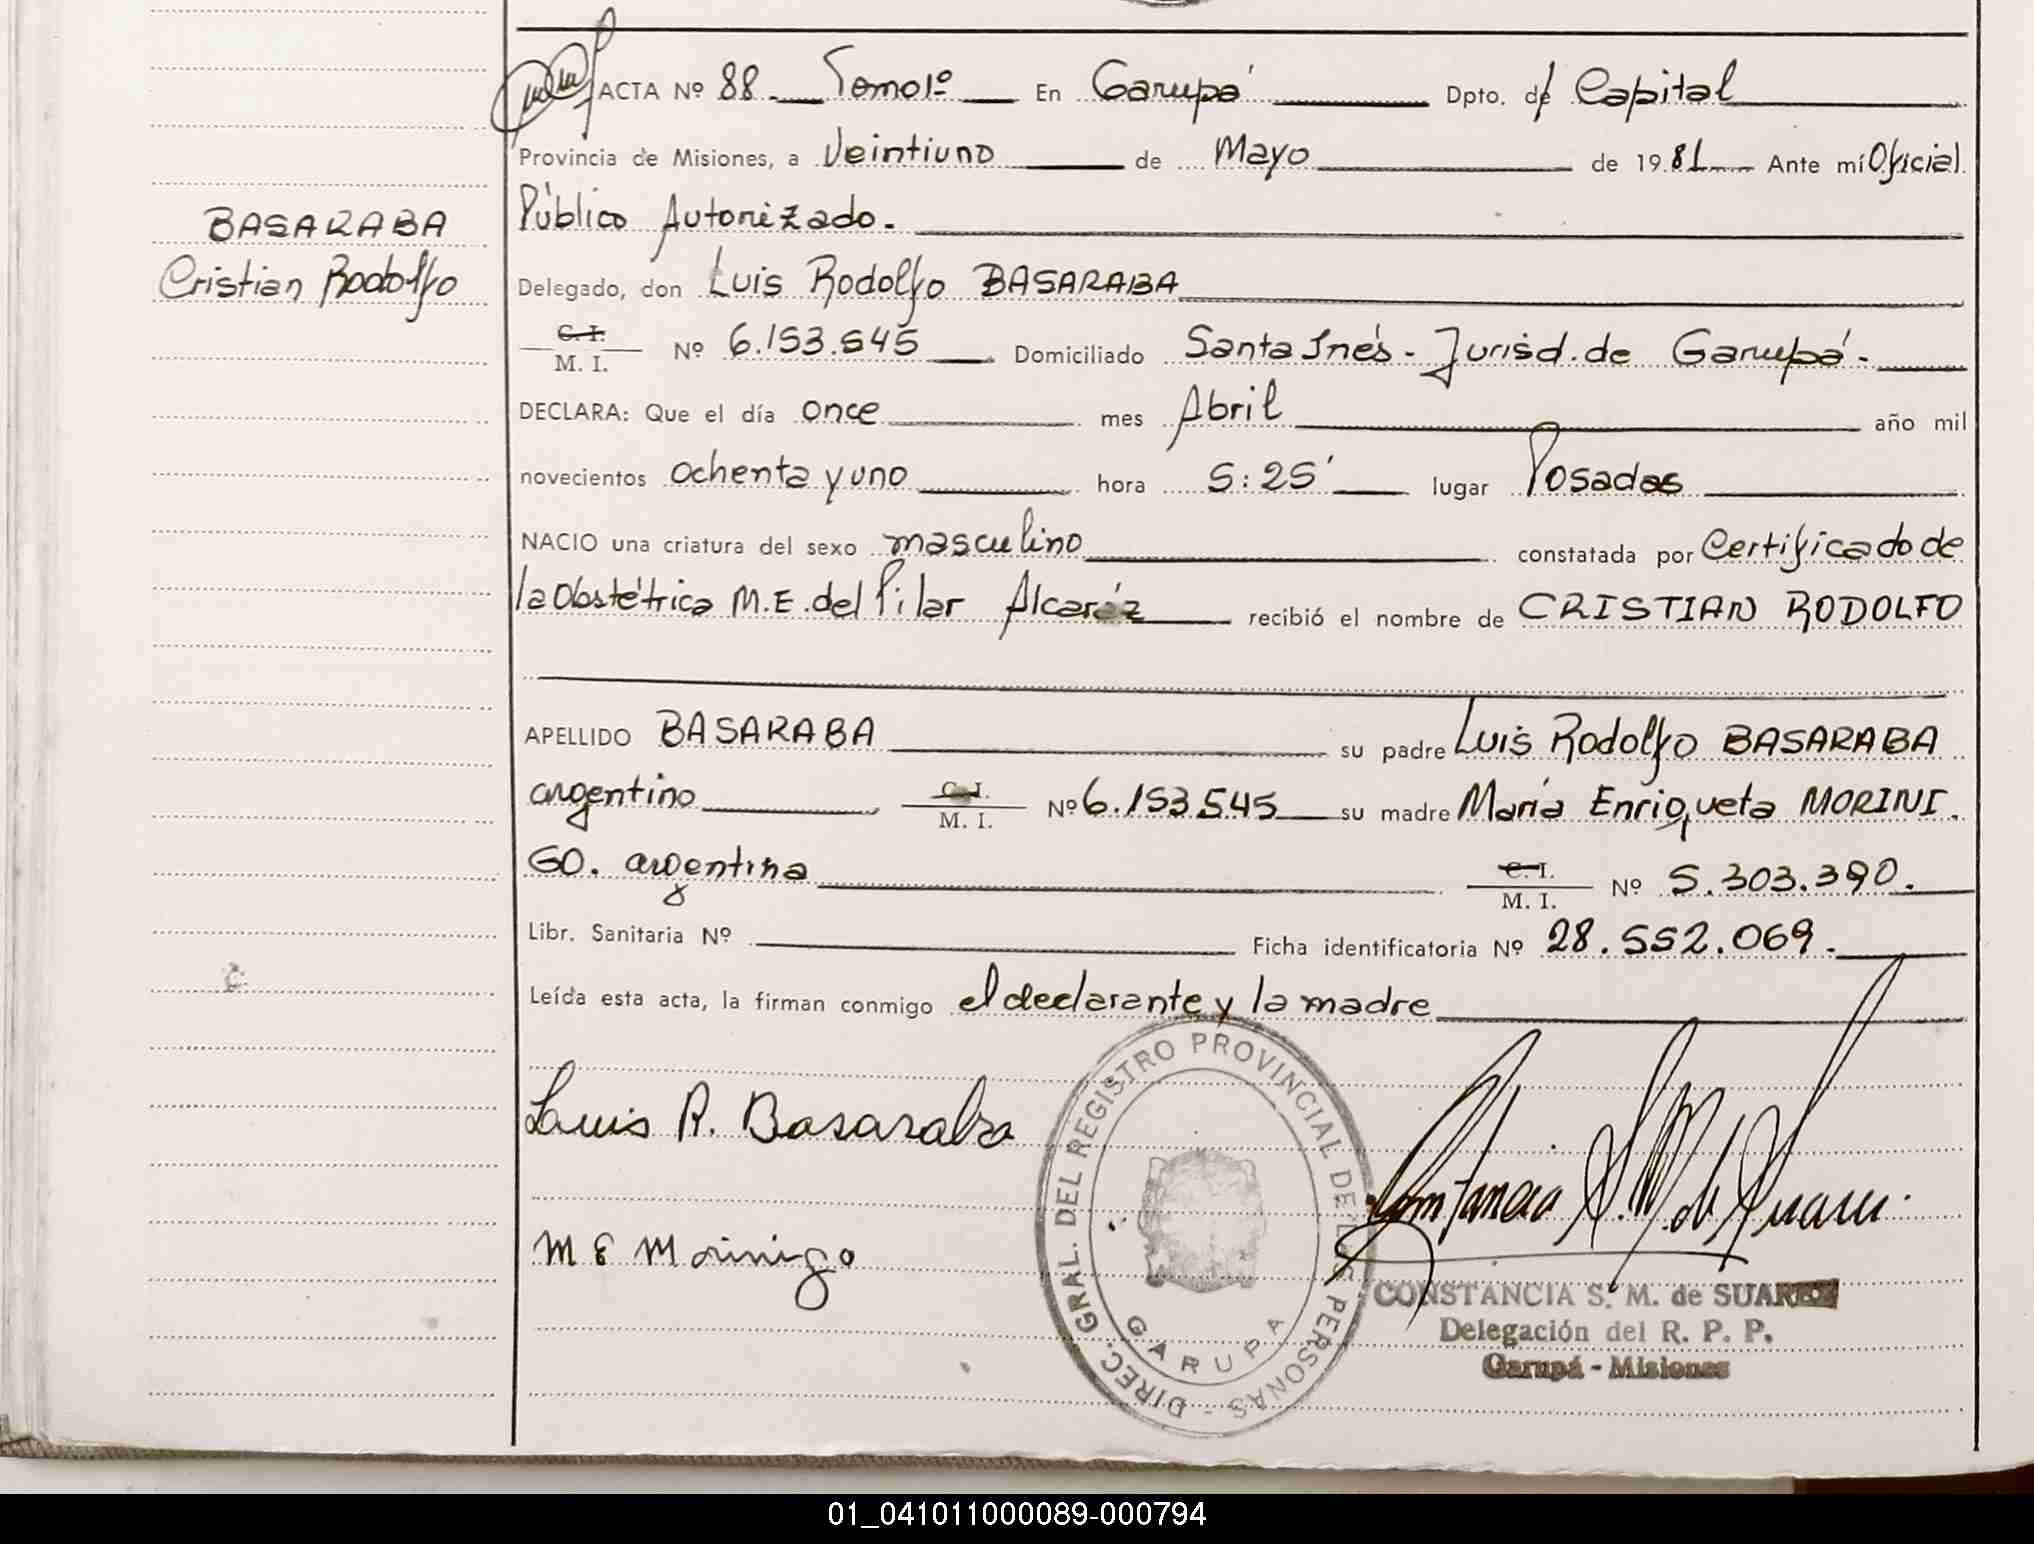 ACTA Nº 88. Tomo 1º En Garupá Dpto. de Capital
Provincia de Misiones, a Veintiuno de Mayo de 1981 Ante mí Oficial
Público Autorizado.
BASARABA
Cristian Rodolfo
Delegado, don Luis Rodolfo BASARABA
C. I.
M. I. Nº 6.153.545 Domiciliado Santa Inés - Jurisd. de Garupá -
DECLARA: Que el día once mes Abril año mil
novecientos ochenta y uno hora 5:25' lugar Posadas
NACIO una criatura del sexo masculino constatada por Certificado de
la Obstétrica M.E. del Pilar Alcaráz recibió el nombre de CRISTIAN RODOLFO
APELLIDO BASARABA su padre Luis Rodolfo BASARABA
argentino C. I.
M. I. Nº 6.153.545 su madre María Enriqueta MORINI.
GO. argentina C. I.
M. I. Nº 5.303.390.
Libr. Sanitaria Nº Ficha identificatoria Nº 28.552.069.
Leída esta acta, la firman conmigo el declarante y la madre
Luis R. Basaraba
M E Morinigo
DIREC. GRAL. DEL REGISTRO PROVINCIAL DE LAS PERSONAS -
GARUPA
Constancia S. M. de Suarez
CONSTANCIA S. M. de SUAREZ
Delegación del R. P. P.
Garupá - Misiones
01_041011000089-000794